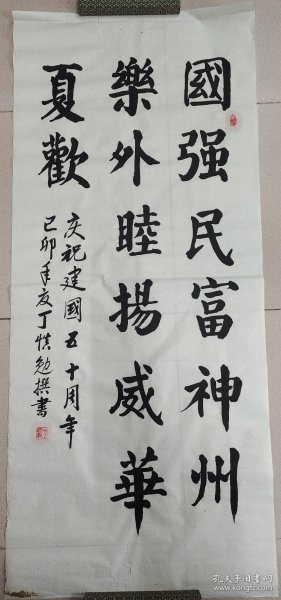 國强民富神州
樂外睦揚威華
夏歡
庆祝建國五十周年
己卯年友丁慎勉撰書
孔夫子旧書网
www.kongfz.com